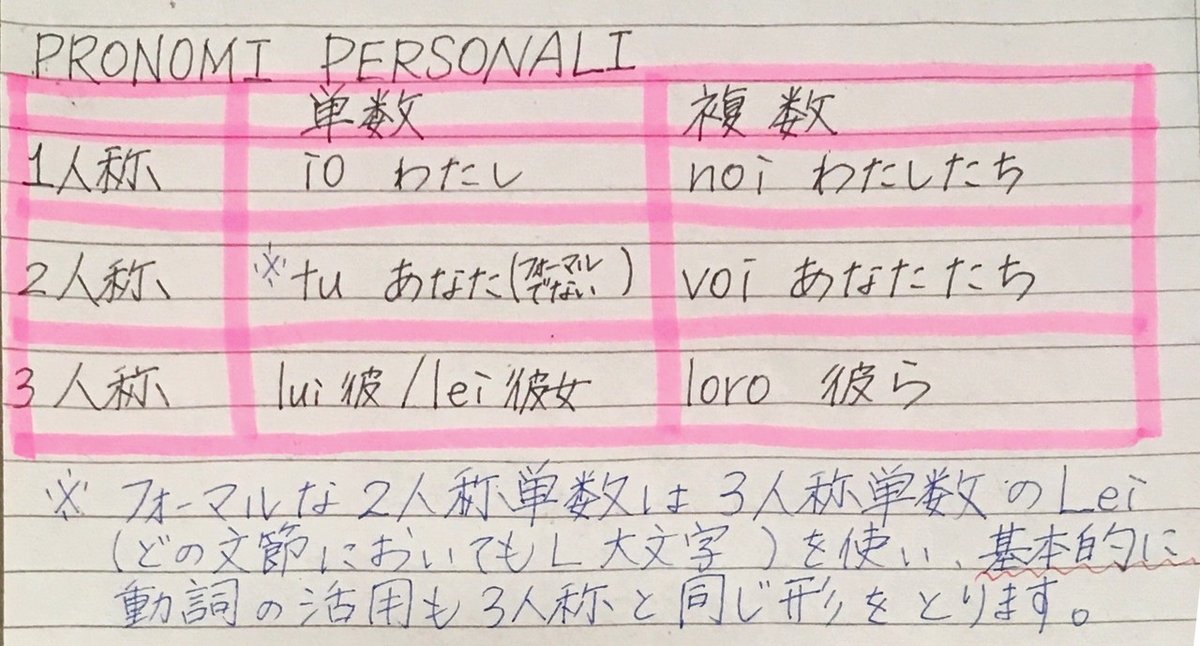 PRONOMI PERSONALI
単数 複数
1人称 io わたし noi わたしたち
2人称 ※tu あなた(フォーマルでない) voi あなたたち
3人称 lui彼/lei彼女 loro 彼ら
※ フォーマルな2人称単数は3人称単数のLei
(どの文節においてもL大文字)を使い、基本的に
動詞の活用も3人称と同じ形をとります。